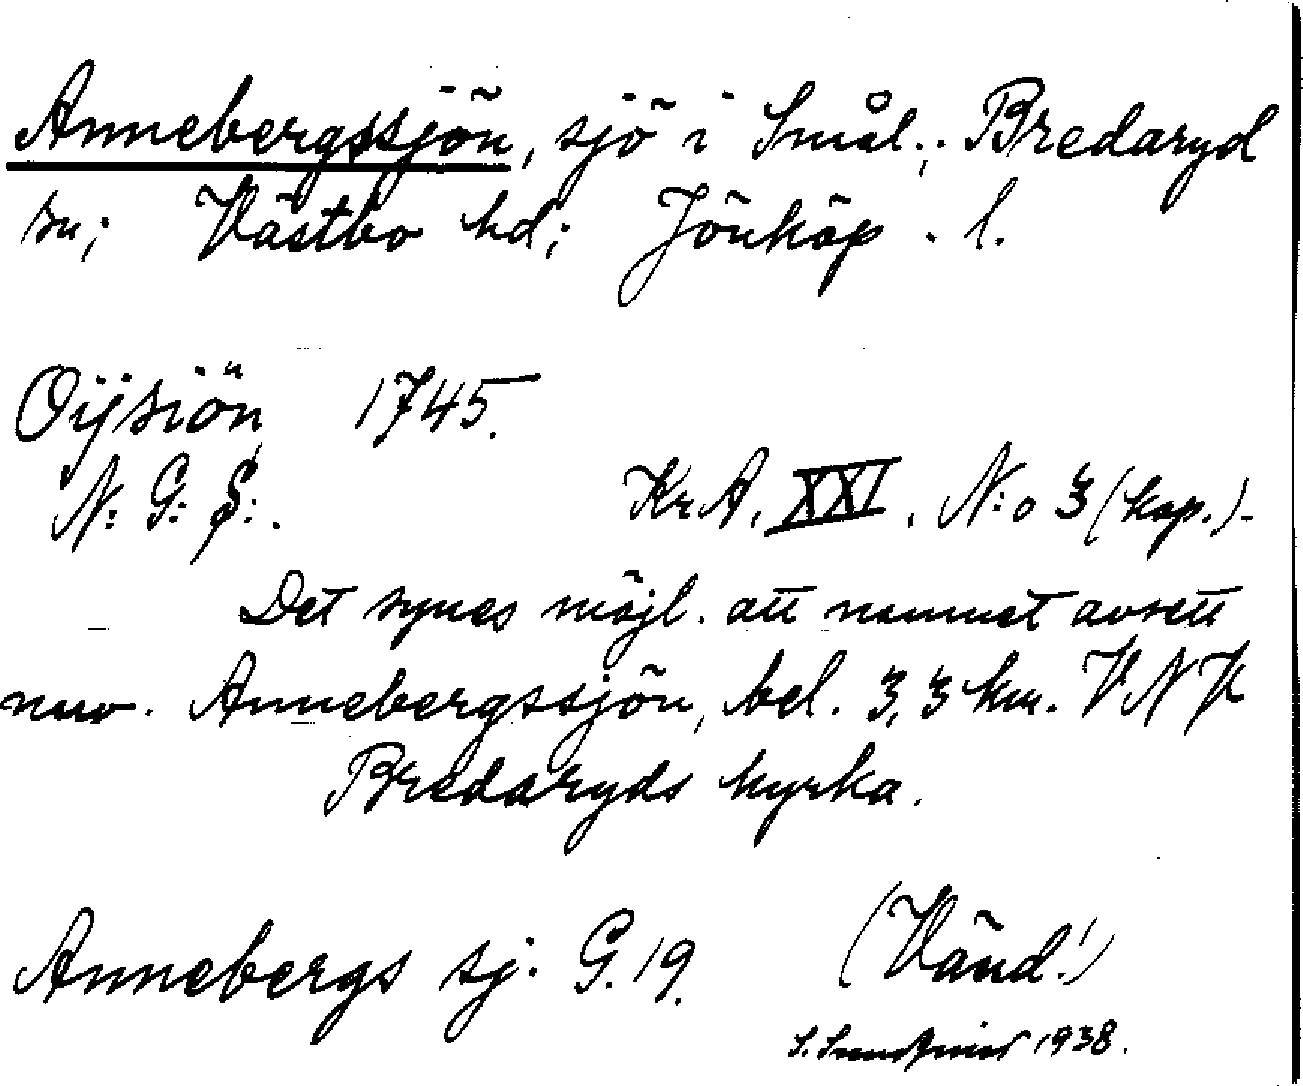 Annebergssjön, sjö i Smål.; Bredaryd
sn; Västbo hd; Jönköp. l.
Oijsiön 1745.
N: G: S: . KrA, XXI, N:o 3 (kop.)-
Det synes möjl. att namnet avsett
nuv. Annebergssjön, bel. 3,3 km. VNV
Bredaryds kyrka.
Annebergs sj. G. 19. (Vänd!)
1938.